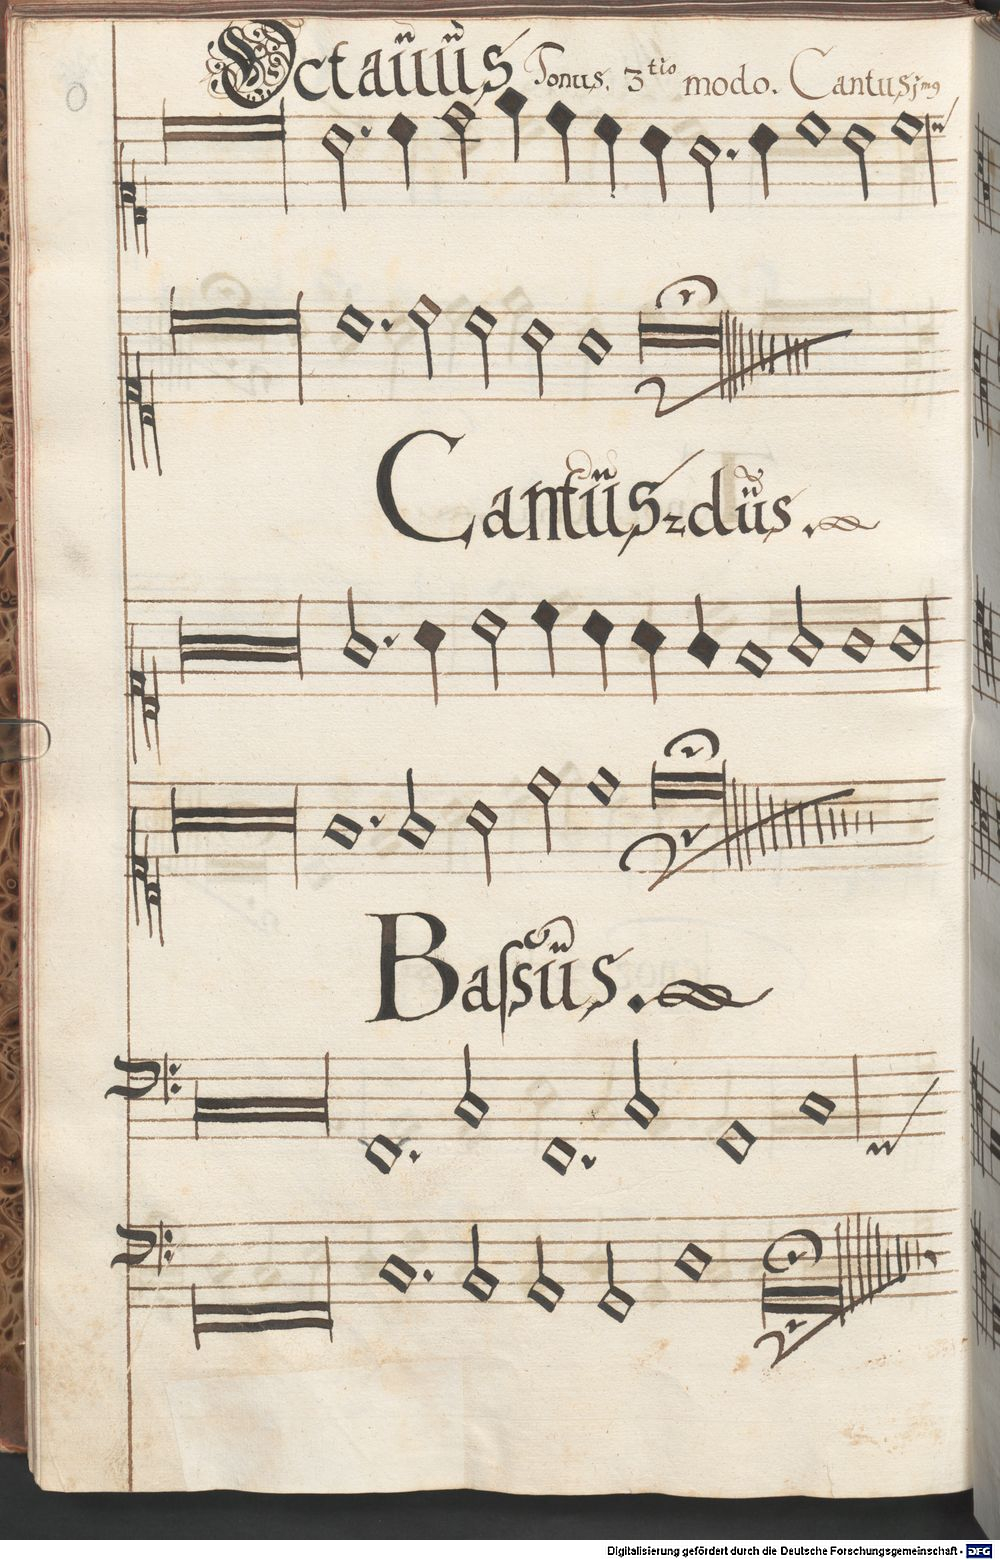 Octauus Tonus. 3tio modo. Cantus jmg
Cantus 2dus.
Bassus.
Digitalisierung gefördert durch die Deutsche Forschungsgemeinschaft - DFG